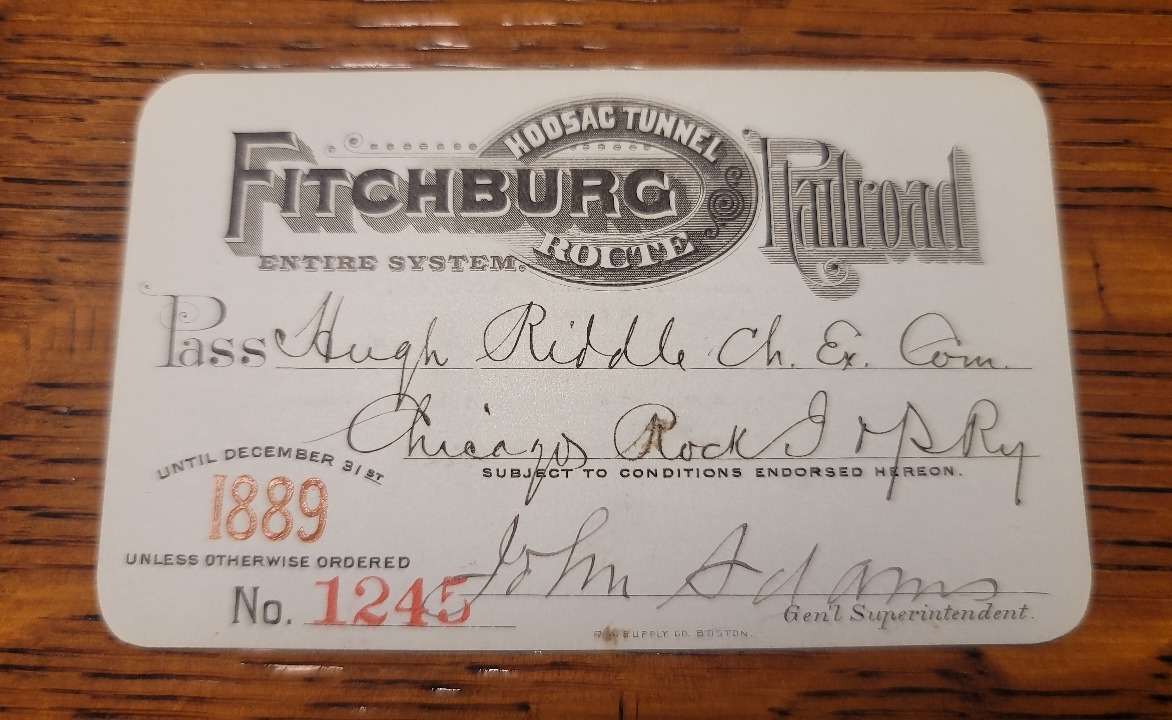 HOOSAC TUNNEL
FITCHBURG Railroad
ROUTE
ENTIRE SYSTEM.
Pass Hugh Riddle Ch. Ex. Com.
Chicago Rock I & P Ry
UNTIL DECEMBER 31ST
SUBJECT TO CONDITIONS ENDORSED HEREON.
1889
UNLESS OTHERWISE ORDERED
John Adams
No. 1245
Gen'l Superintendent.
SUPPLY CO. BOSTON.